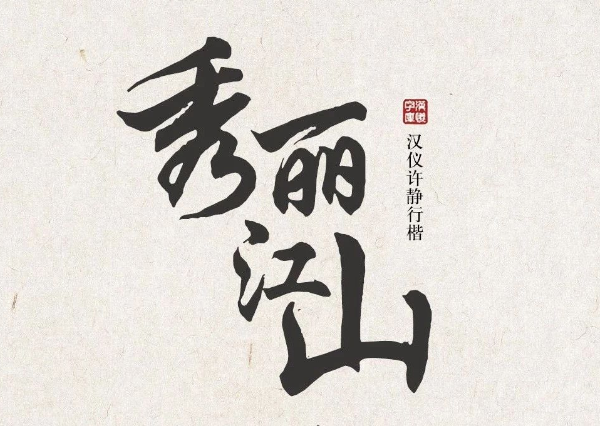 秀丽
江山
汉仪字库
汉仪许静行楷